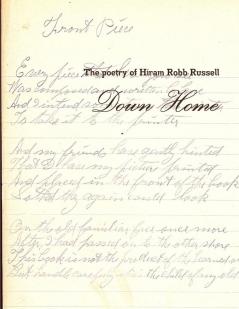 Front Piece
The poetry of Hiram Robb Russell
Down Home
Every piece
Was composed and written
And I intend
To take it to the printer
And my friends have gently hinted
That I have my picture printed
And placed in the front of the book
So that they again could look
On the old familiar face once more
After I had passed on to the other shore
This book is not the product of the learned or
But handle carefully it is the child of my old